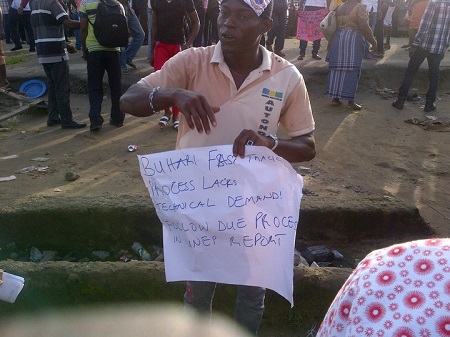 BUHARI FAST TRACK
PROCESS LACKS
TECHNICAL DEMAND!
FOLLOW DUE PROCESS
IN UNEP REPORT
AUTONO